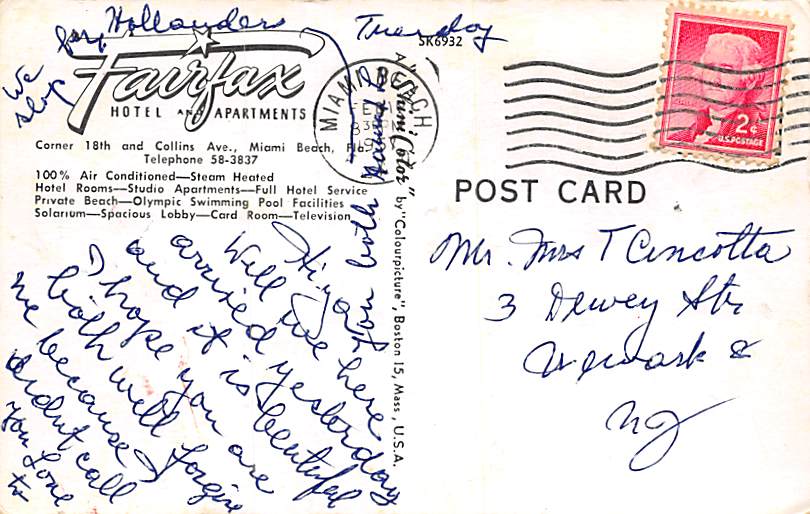 Hollanders
Tuesday
SK6932
We
stop
by
Fairfax
HOTEL AND APARTMENTS
Corner 18th and Collins Ave., Miami Beach, Fla.
Telephone 58-3837
100% Air Conditioned—Steam Heated
Hotel Rooms—Studio Apartments—Full Hotel Service
Private Beach—Olympic Swimming Pool Facilities
Solarium—Spacious Lobby—Card Room—Television
MIAMI BEACH
2¢
U.S. POSTAGE
A "Plasti Color" by "Colourpicture", Boston 15, Mass., U.S.A.
POST CARD
Mr. Mrs T Cincotta
3 Dewey Str
Newark 8
NJ
Hi yah
Well we here
arrived yesterday
and it is beutiful
I hope you are
both well forgive
me because I
didnt call
you Love
to
you both